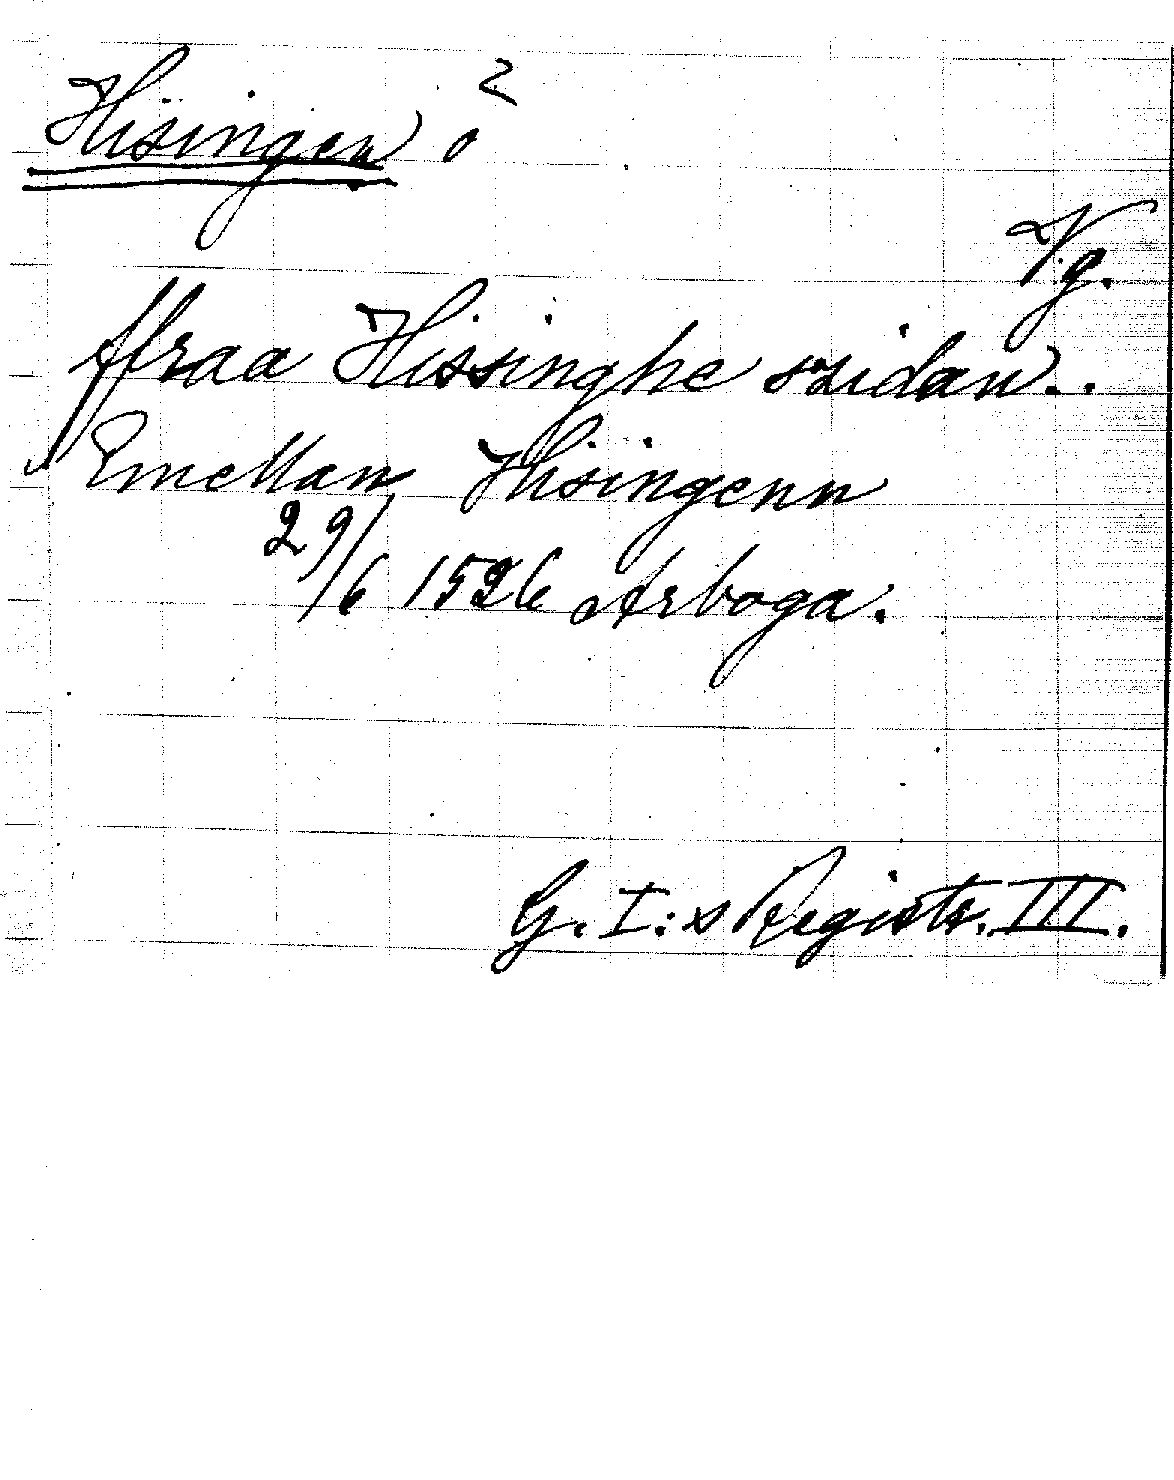 Hisingen, ö 2
Vg.
ffraa Hissinghe szidan..
Emellan Hisingenn
29/6 1526 Arboga.
G. I:s Registr. III.